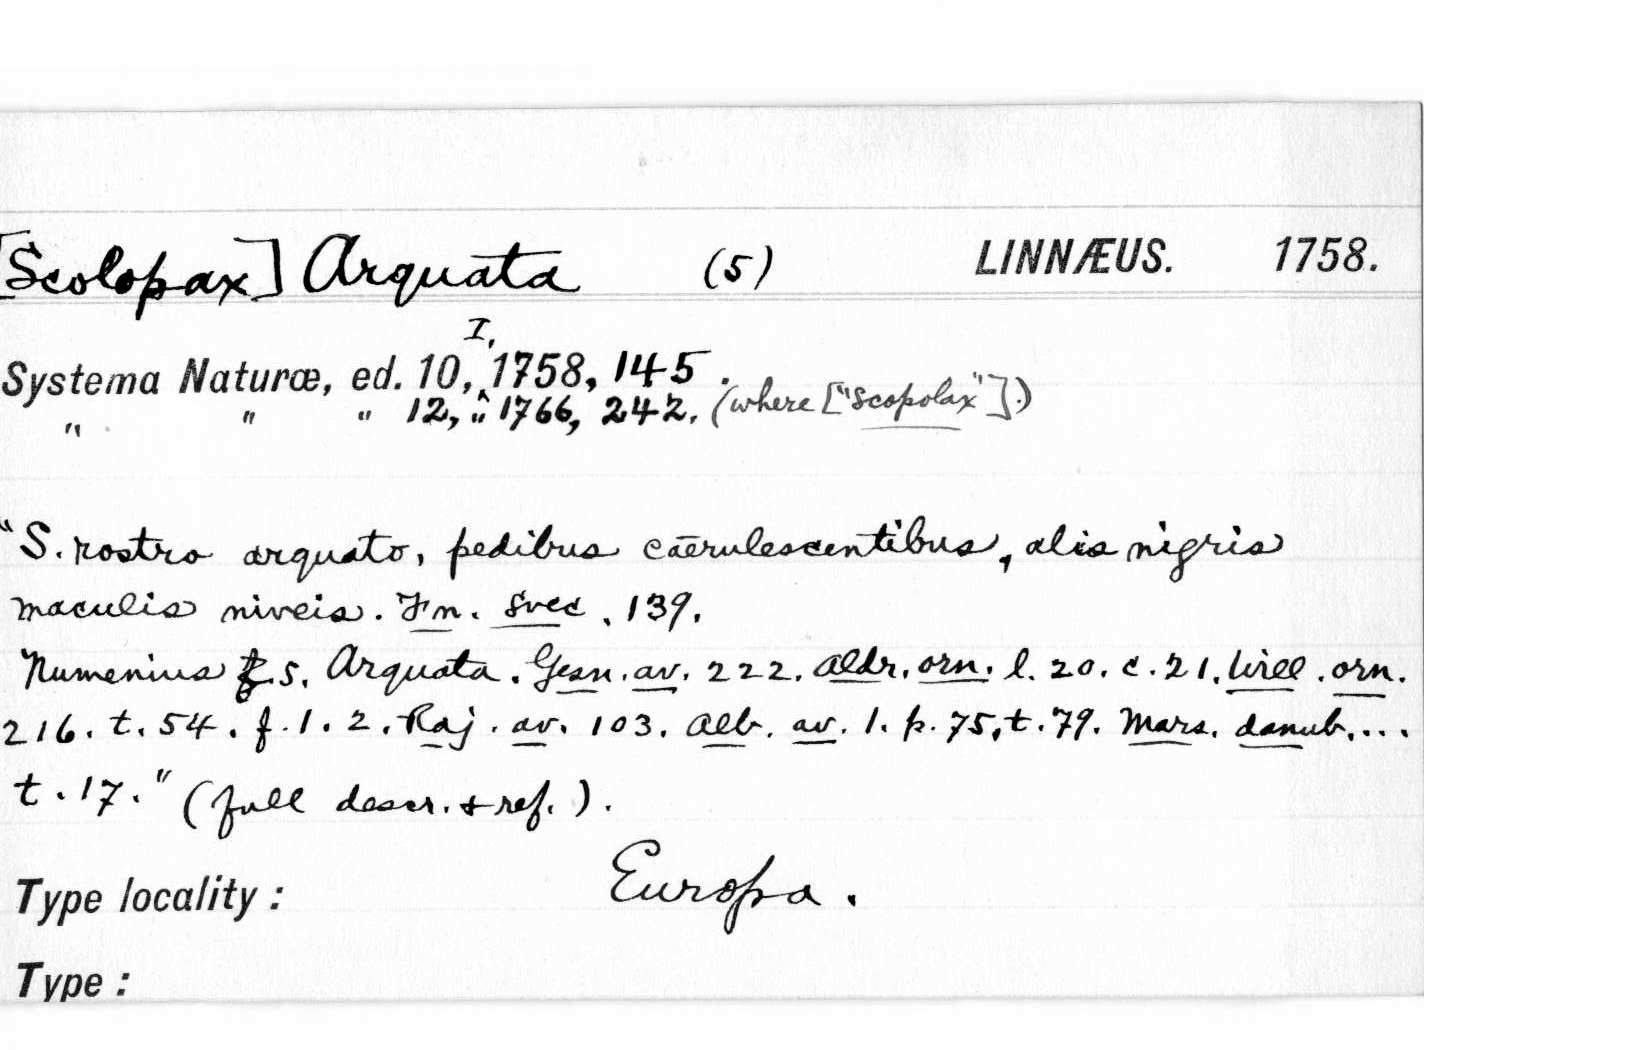 [Scolopax] Arquata (5) LINNÆUS. 1758.
I,
Systema Naturæ, ed. 10, 1758, 145.
" " " 12, " 1766, 242. (where ["Scopolax"].)
"S. rostro arquato, pedibus caerulescentibus, alis nigris
maculis niveis. Fn. Svec. 139.
Numenius s. Arquata. Gesn. av. 222. Aldr. orn. l. 20. c. 21. Will. orn.
216. t. 54. f. 1. 2. Raj. av. 103. Alb. av. 1. p. 75, t. 79. Mars. danub. ...
t. 17." (full descr. & ref.).
Type locality: Europa.
Type: